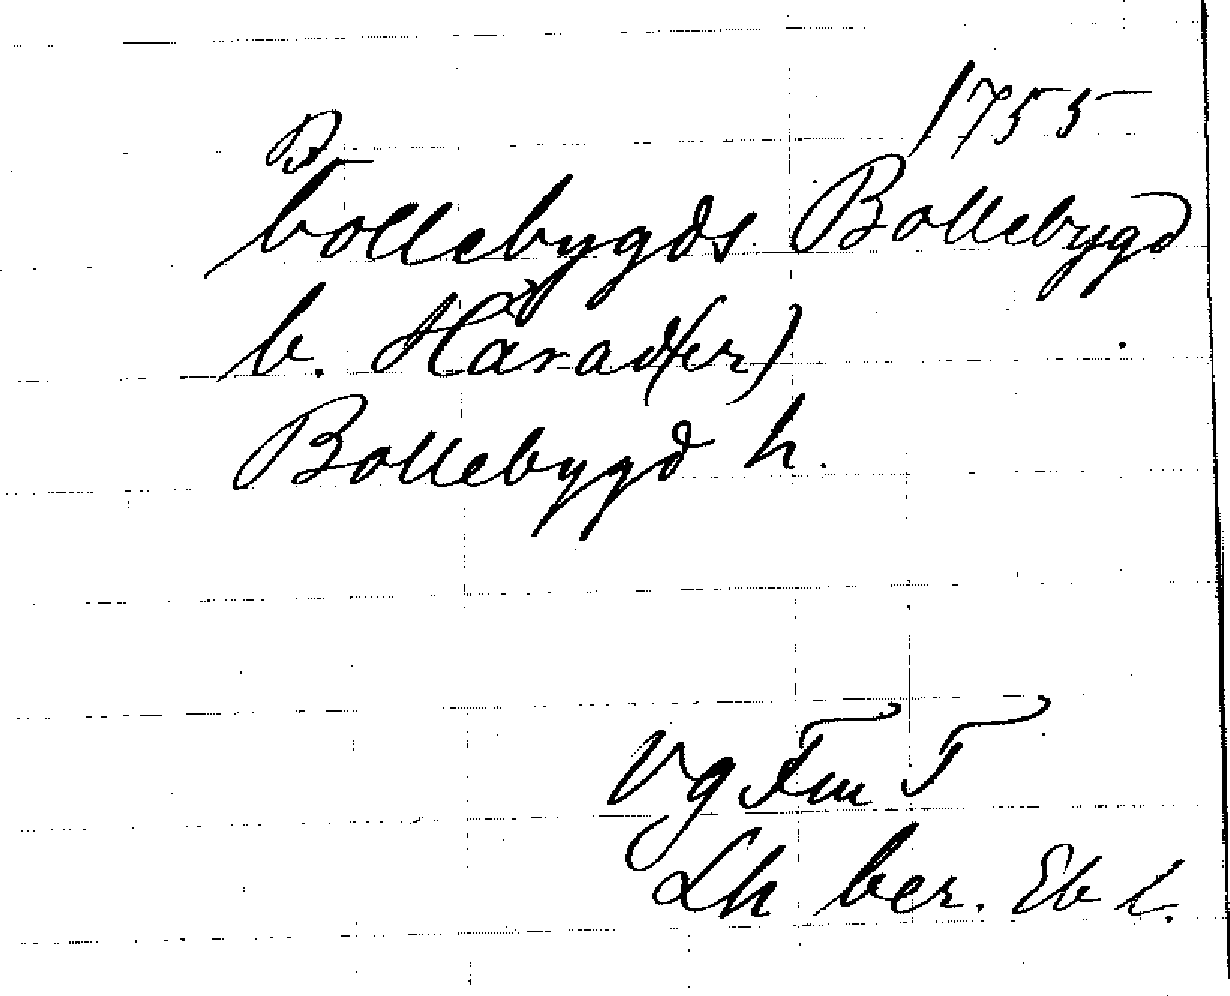 1755
B
bollebygds Bollebygd
b. Härad(er)
Bollebygd h.
Vg Fm T
Lh ber. Eb l.